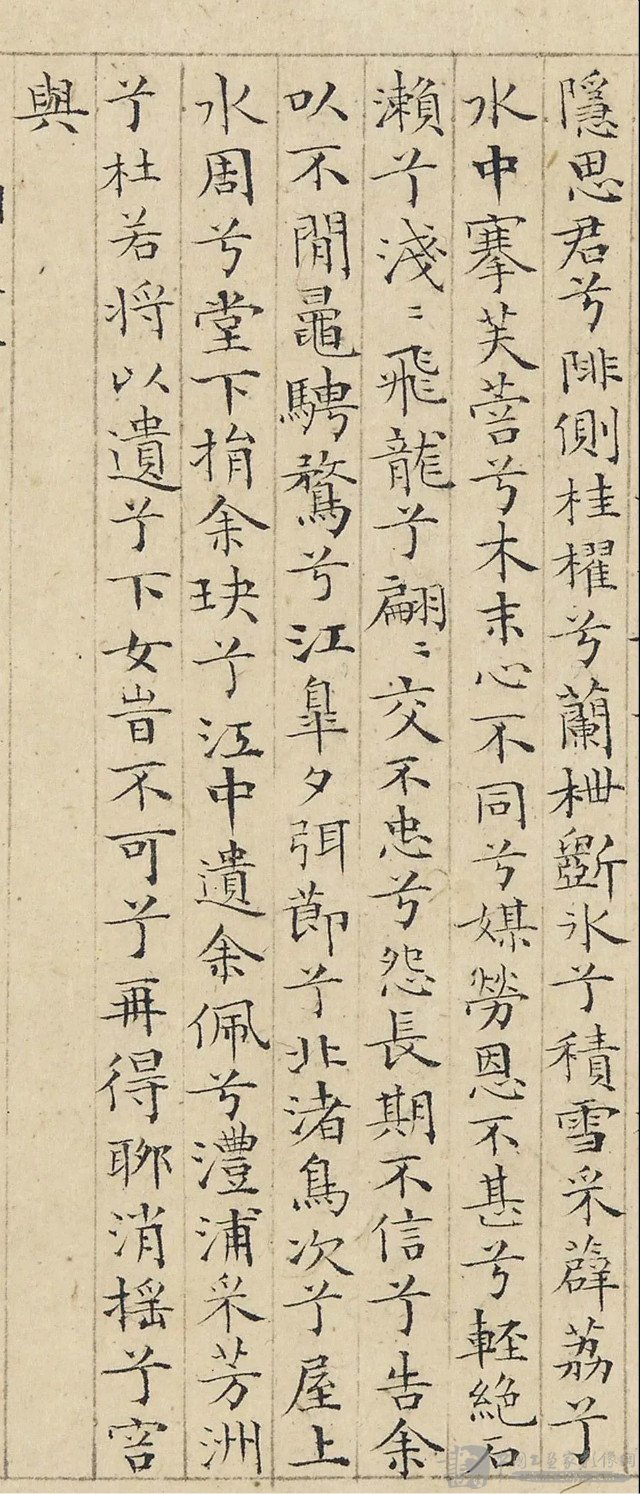 隱思君兮陫側桂櫂兮蘭枻斲氷兮積雪采薜荔兮
水中搴芙蓉兮木末心不同兮媒勞恩不甚兮輕絕石
瀨兮淺〻飛龍兮翩〻交不忠兮怨長期不信兮告余
以不閒鼂騁騖兮江皐夕弭節兮北渚鳥次兮屋上
水周兮堂下捐余玦兮江中遺余佩兮澧浦采芳洲
兮杜若将以遺兮下女旹不可兮再得聊消搖兮容
與